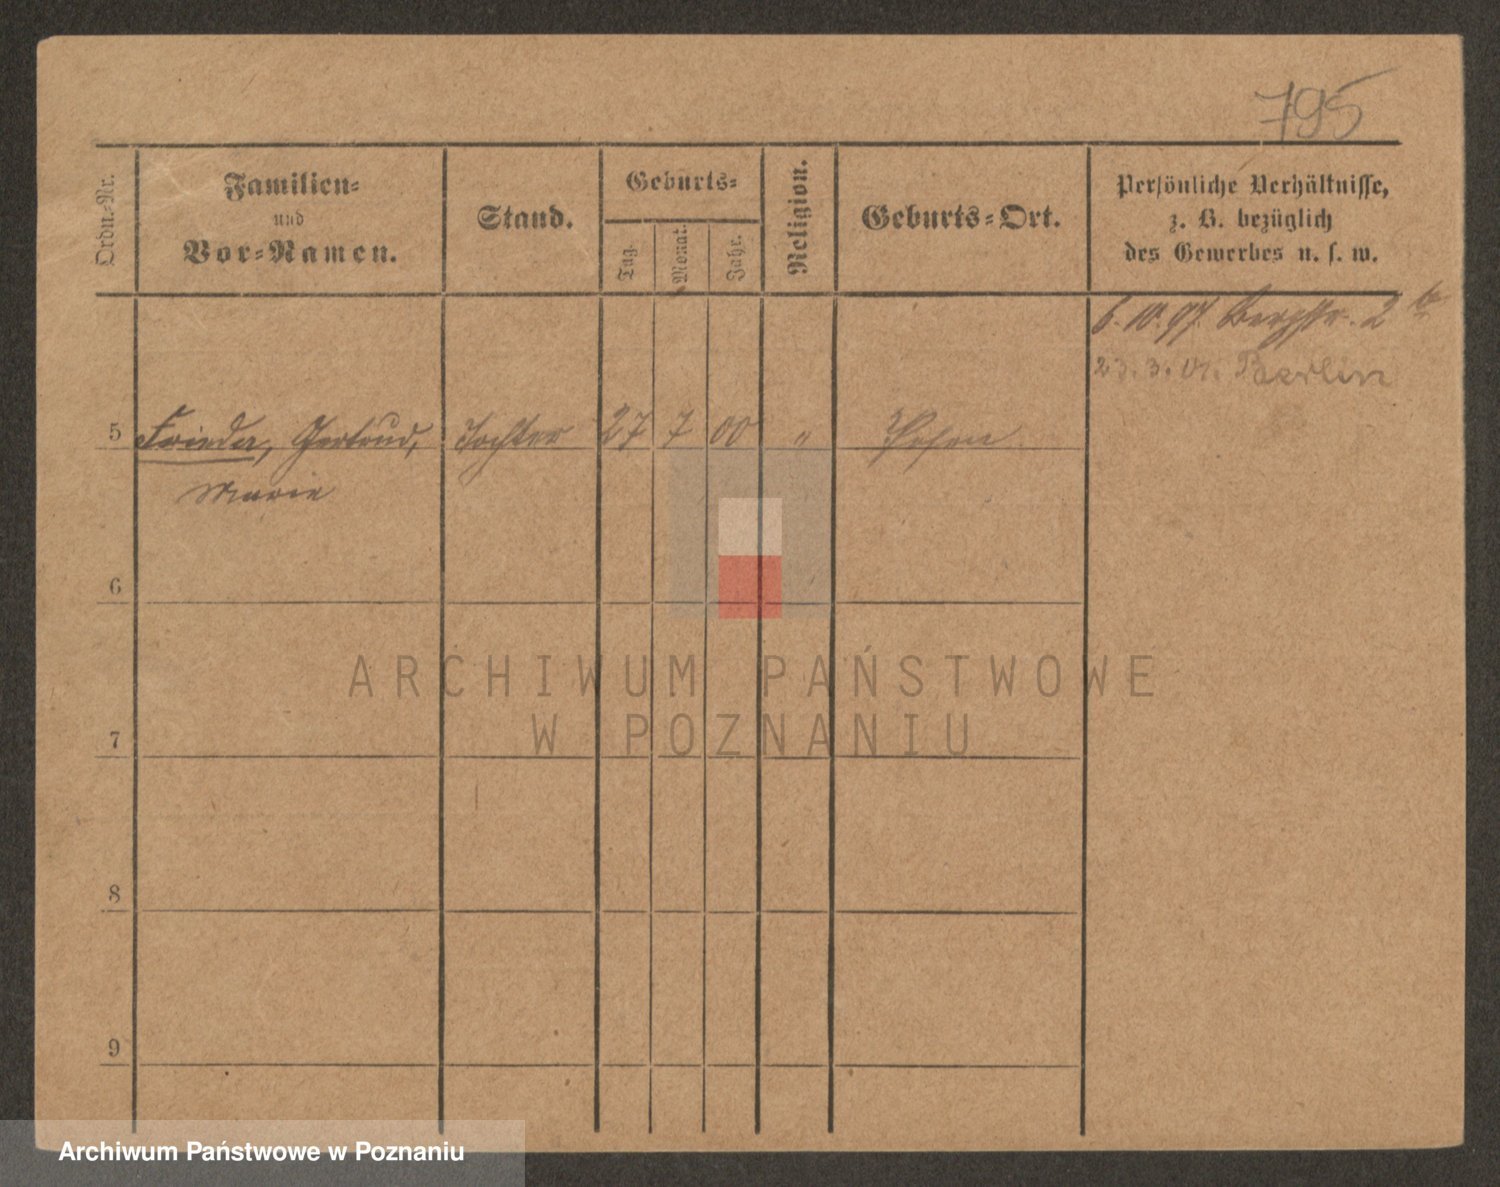 795
Ordn.-Nr.
Familien-
und
Vor-Namen.
Stand.
Geburts-
Tag.
Monat.
Jahr.
Religion.
Geburts-Ort.
Persönliche Verhältnisse,
z. B. bezüglich
des Gewerbes u. s. w.
6.10.97. Bergstr. 2 b
23.3.01. Berlin
5 Frieda, Gertrud, Tochter 27 7 00 " Posen
Marie
6
7
8
9
ARCHIWUM PAŃSTWOWE
W POZNANIU
Archiwum Państwowe w Poznaniu